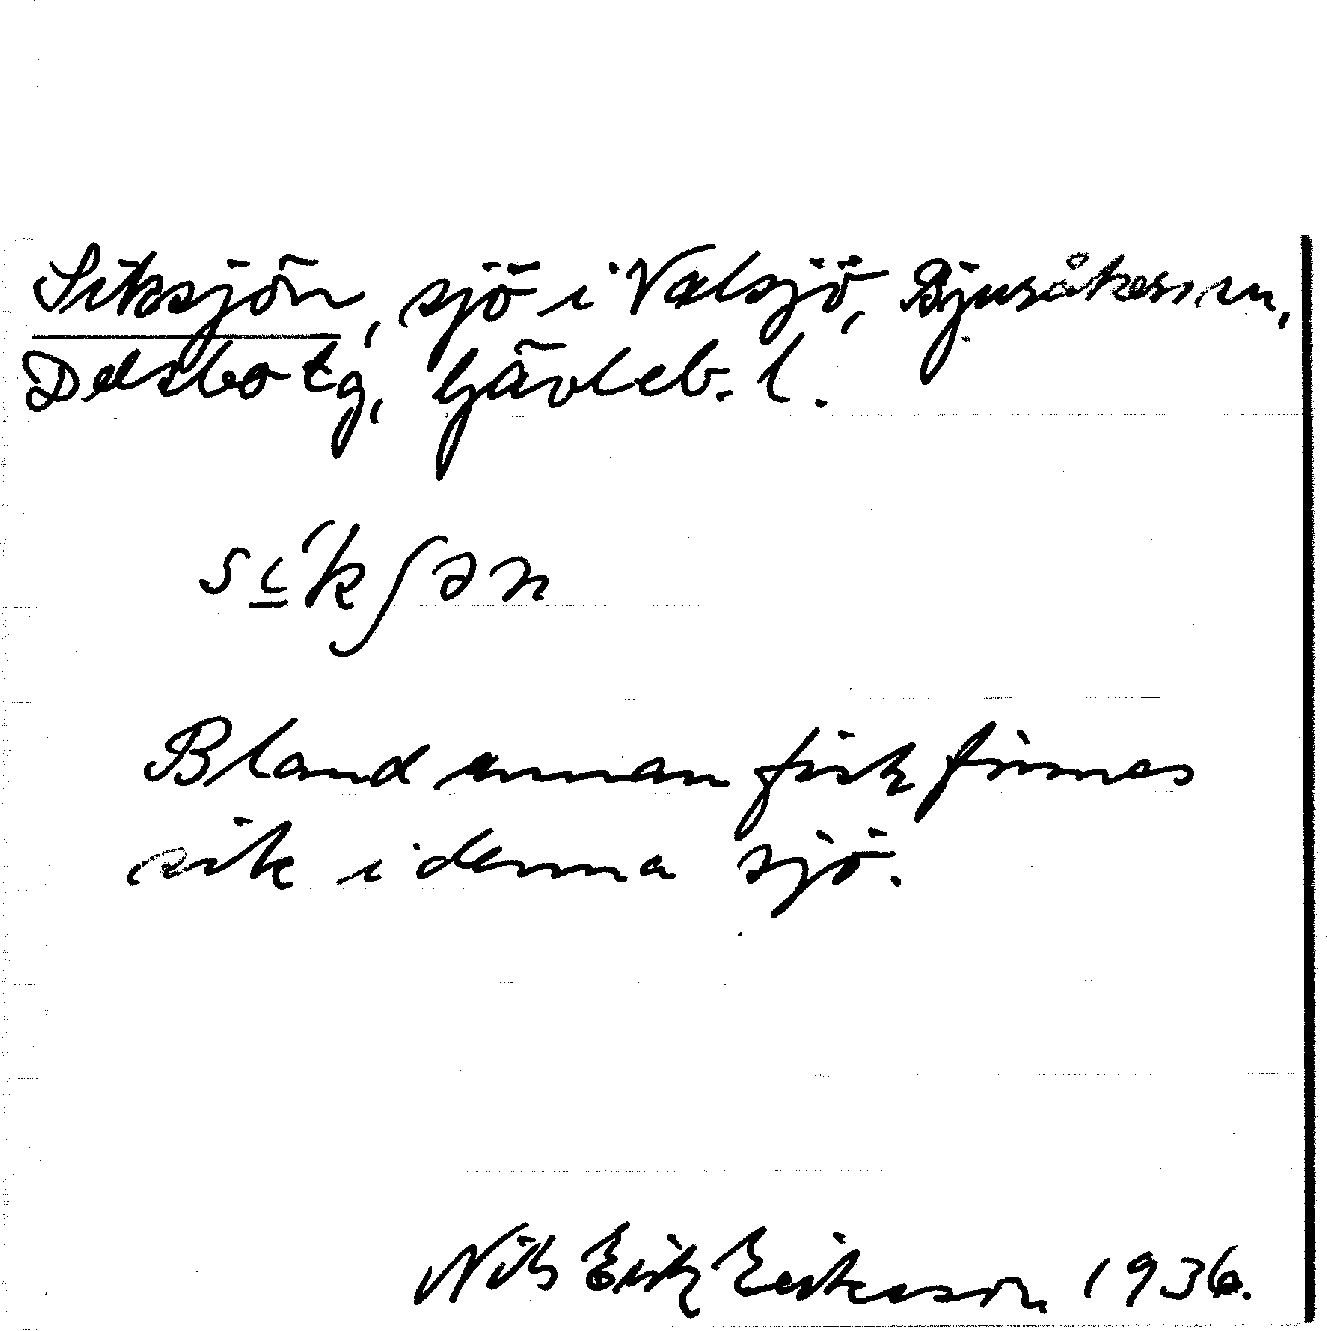 Siksjön, sjö i Valsjö, Bjuråkers sn,
Delsbo tg, Gävleb. l.
sı̲́kʃən
Bland annan fisk finnes
sik i denna sjö.
Nils Erik Eriksson 1936.